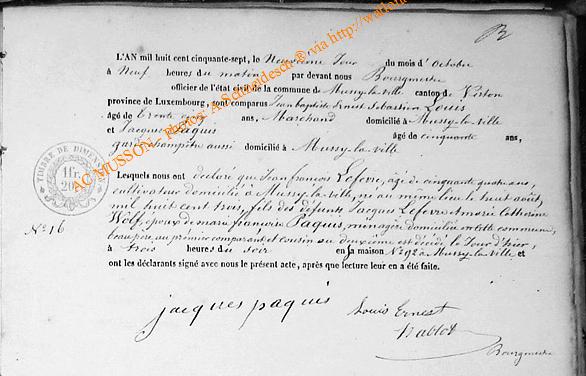 R
L'AN mil huit cent cinquante-sept, le Neuvième Jour du mois d'Octobre
à Neuf heures du matin par devant nous Bourgmestre
officier de l'état civil de la commune de Mussy-la-ville canton de Virton
province de Luxembourg, sont comparus Jean baptiste Ernest Sébastien Louis
âgé de trente cinq ans, Marchand domicilié à Mussy-la-ville
et Jacques Paquis âgé de cinquante ans,
garde champêtre aussi domicilié à Mussy-la-ville
Lesquels nous ont déclaré que Jean françois Lefevre, âgé de cinquante quatre ans,
cultivateur domicilié à Mussy-la-ville, né au même lieu le huit août
mil huit cent trois, fils des défunts Jacques Lefevre et marie Catherine
Wolf, époux de marie françoise Paquis, ménagère domiciliée en cette commune,
beau père au premier comparant et cousin au deuxième est décédé le Jour d'hier,
à trois heures du soir en sa maison N° 92 à Mussy-la-ville et
ont les déclarants signé avec nous le présent acte, après que lecture leur en a été faite.
N° 16
TIMBRE DE DIMENSION
1 fr.
20
jacques paquis
Louis Ernest
Nablot
Bourgmestre
AC MUSSON Photos: A.Schneidesch ® via http://wallon